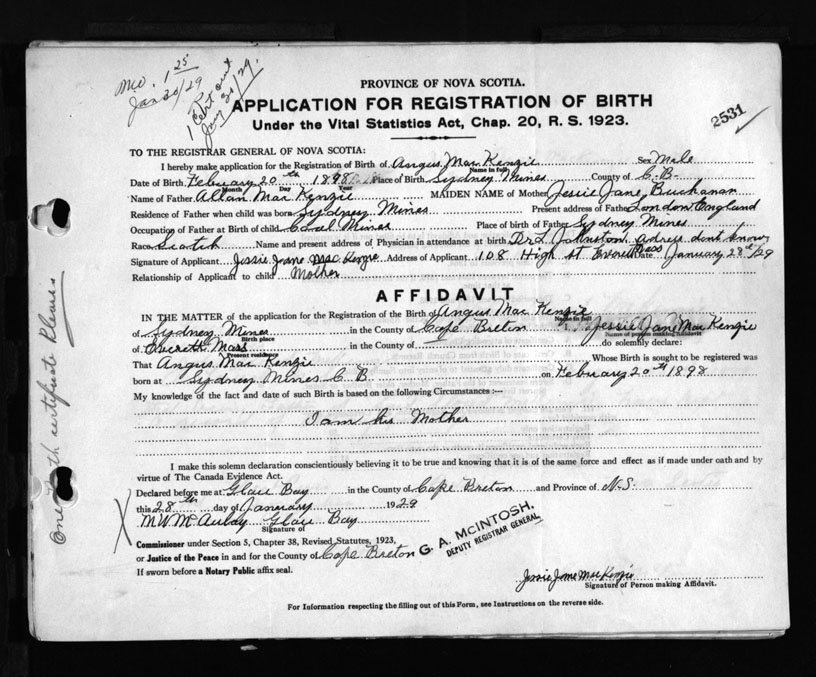 M.O. 1 25
Jan 30/29
1 Cert out
Jany 30/29.
PROVINCE OF NOVA SCOTIA.
APPLICATION FOR REGISTRATION OF BIRTH
Under the Vital Statistics Act, Chap. 20, R. S. 1923.
2531
TO THE REGISTRAR GENERAL OF NOVA SCOTIA:
I hereby make application for the Registration of Birth of Angus Mac Kenzie Sex Male
Name in full
Date of Birth February 20th 1898 Place of Birth Sydney Mines County of C. B.
Month Day Year
Name of Father Allan Mac Kenzie MAIDEN NAME of Mother Jessie Jane Buchanan
Residence of Father when child was born Sydney Mines Present address of Father London England
Occupation of Father at Birth of child Coal Mines Place of birth of Father Sydney Mines
Race Scotch Name and present address of Physician in attendance at birth Dr L Johnston adress dont know
Signature of Applicant Jessie Jane MacKenzie Address of Applicant 108 High St Everett Mass Date January 28th/29
Relationship of Applicant to child Mother
AFFIDAVIT
IN THE MATTER of the application for the Registration of the Birth of Angus Mac Kenzie
Name in full
of Sydney Mines in the County of Cape Breton Jessie Jane Mac Kenzie
Birth place Name of person making Affidavit
of Evereth Mass in the County of do solemnly declare:
Present residence
That Angus Mac Kenzie Whose Birth is sought to be registered was
born at Sydney Mines C B on February 20th 1898
My knowledge of the fact and date of such Birth is based on the following Circumstances :—
I am his Mother
I make this solemn declaration conscientiously believing it to be true and knowing that it is of the same force and effect as if made under oath and by
virtue of The Canada Evidence Act.
Declared before me at Glace Bay in the County of Cape Breton and Province of N.S.
this 28th day of January 1929
M W McAulay Glace Bay
Signature of
Commissioner under Section 5, Chapter 38, Revised Statutes, 1923,
or Justice of the Peace in and for the County of Cape Breton
If sworn before a Notary Public affix seal.
G. A. McINTOSH,
DEPUTY REGISTRAR GENERAL
Jessie Jane MacKenzie
Signature of Person making Affidavit.
For Information respecting the filling out of this Form, see Instructions on the reverse side.
One certificate Please